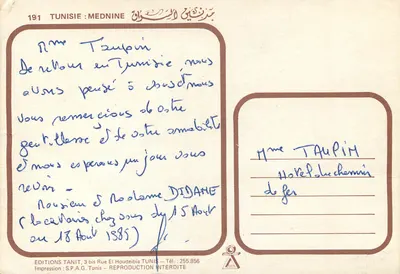 191 TUNISIE : MEDNINE
Mme Taupin
De retour en Tunisie nous
avons pensé à vous et nous
vous remercions de votre
gentillesse et de votre amabilité
et nous esperons un jour vous
revoir.
Monsieur et Madame DIDANE
(locataires chez vous du 15 Aout
au 18 Aout 1985)
Mme TAUPIN
Hotel du chemin
de fer
EDITIONS TANIT, 3 bis Rue El Houdeibia TUNIS - Tél. : 255.898
IMP. : S.P.A.G. Tunis - REPRODUCTION INTERDITE